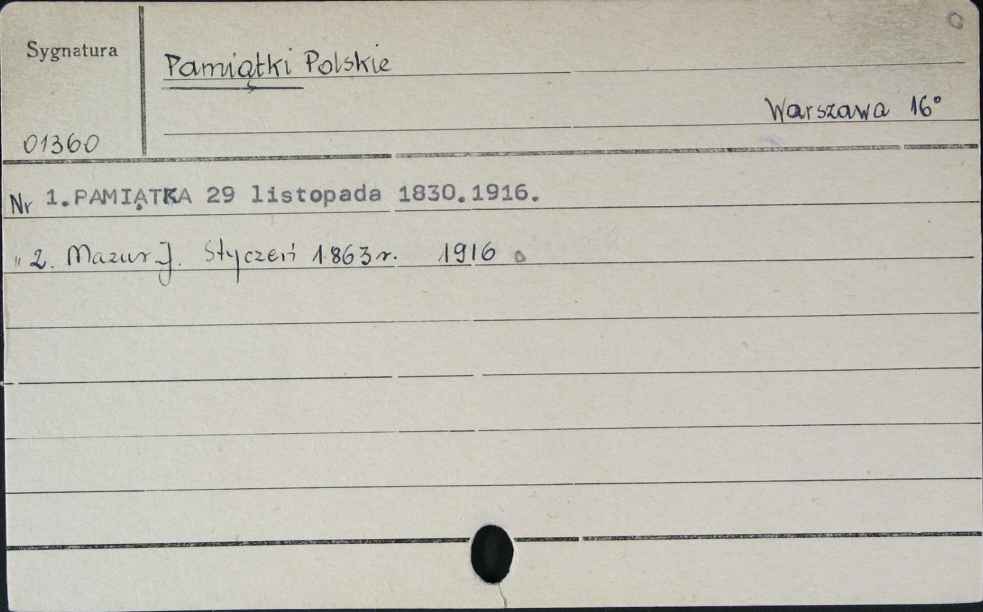 Sygnatura
Pamiątki Polskie
Warszawa 16°
01360
Nr 1. PAMIĄTKA 29 listopada 1830.1916.
" 2. Mazur J. Styczeń 1863 r. 1916